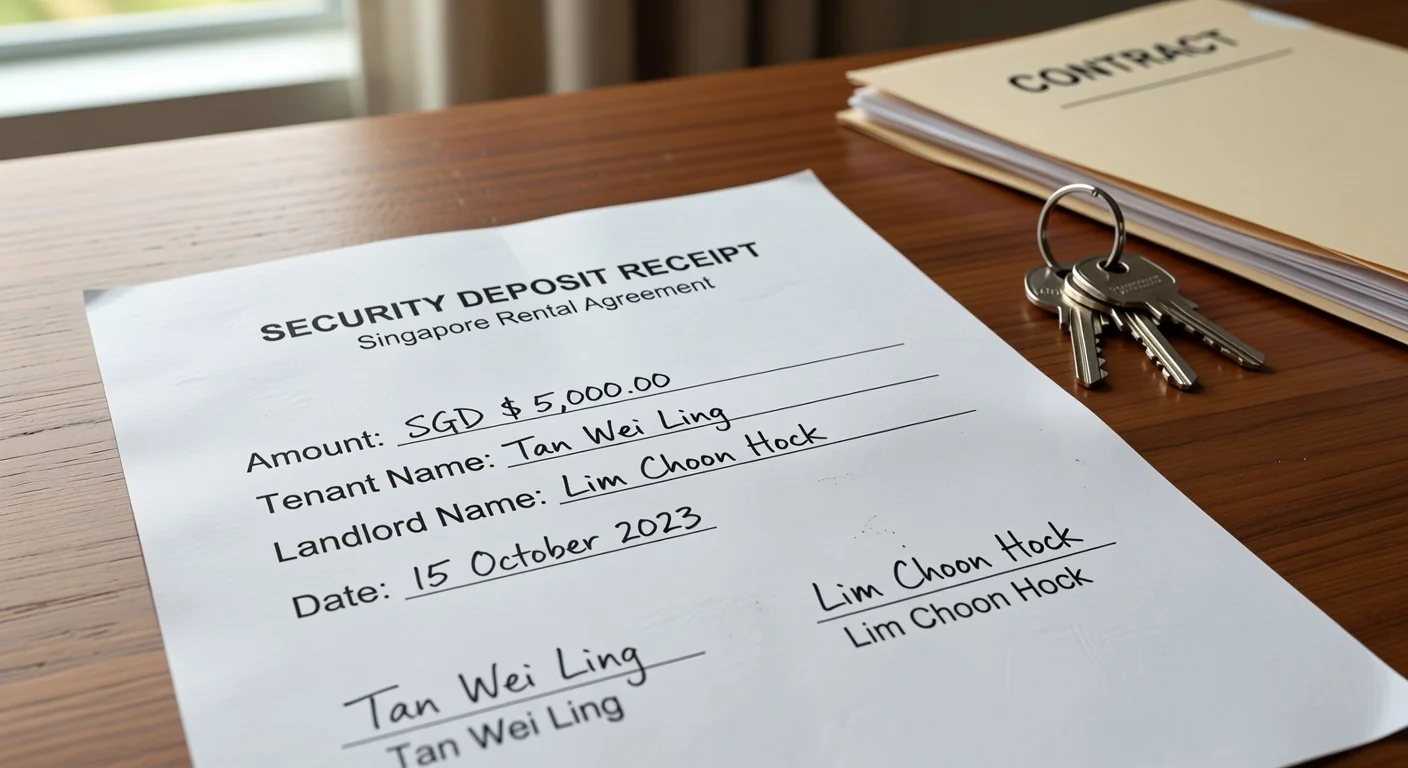 CONTRACT
SECURITY DEPOSIT RECEIPT
Singapore Rental Agreement
Amount: SGD $ 5,000.00
Tenant Name: Tan Wei Ling
Landlord Name: Lim Choon Hock
Date: 15 October 2023
Lim Choon Hock
Lim Choon Hock
Tan Wei Ling
Tan Wei Ling